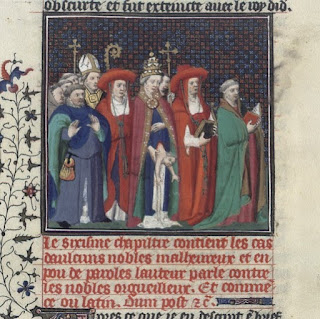 obscurte et fut extincte auec le roy did.
Le sixisme chapiltre contient les cas
daulcuns nobles malheureux et en
pou de paroles lauteur parle contre
les nobles orgueilleux. Et commē
ce ou latin. Dum post ⁊ c̄.
Apres ce que ie eu descript